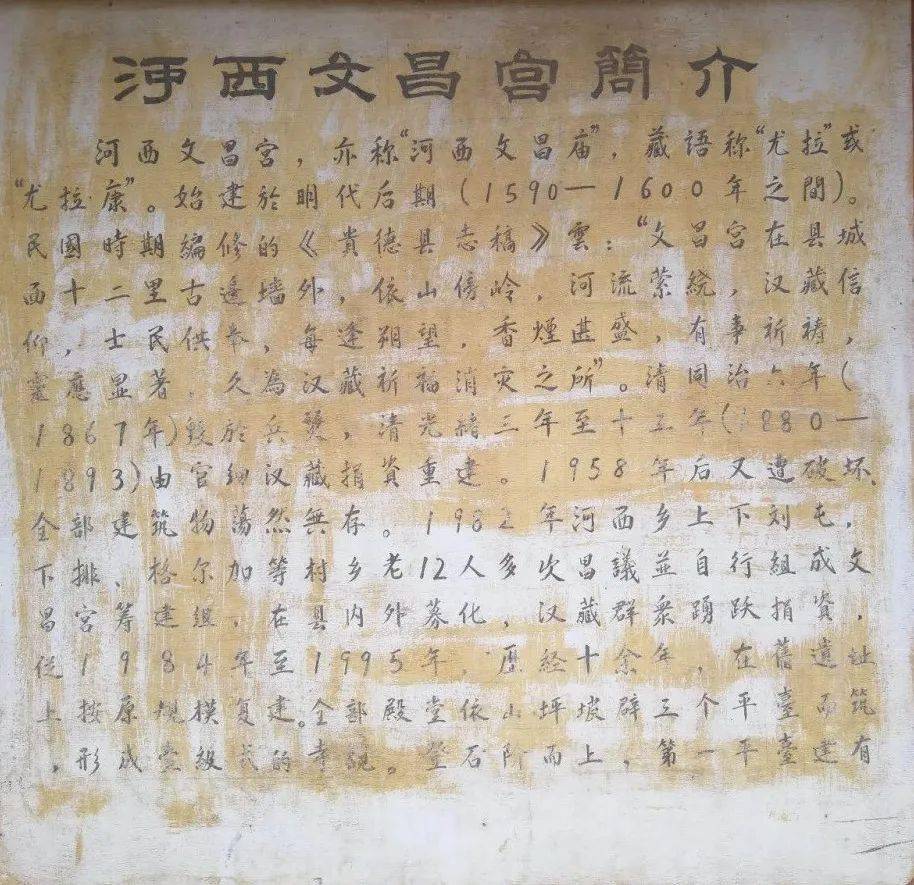 河西文昌宫簡介
河西文昌宫，亦称“河西文昌庙”，藏語称“尤拉”或
“尤拉康”。始建於明代后期（1590—1600年之間）。
民國時期編修的《貴德县志稿》雲：“文昌宫在县城
西十二里古邊墙外，依山傍岭，河流萦繞，汉藏信
仰，士民供奉，每逢朔望，香煙甚盛，有事祈禱，
靈應显著，久為汉藏祈福消灾之所”。清同治六年（
1867年)毁於兵燹，清光緒三年至十五年(1880—
1893)由官绅汉藏捐資重建。1958年后又遭破坏、
全部建筑物荡然無存。1982年河西乡上下刘屯，
下排、格尔加等村乡老12人多次昌議並自行組成文
昌宫筹建组，在县内外募化，汉藏群衆踊跃捐資，
從1984年至1995年，歷经十余年，在舊遺址
上，按原規模复建。全部殿堂依山坪坡辟三个平臺而筑
，形成壹级式的寺觀。登石阶而上，第一平臺建有